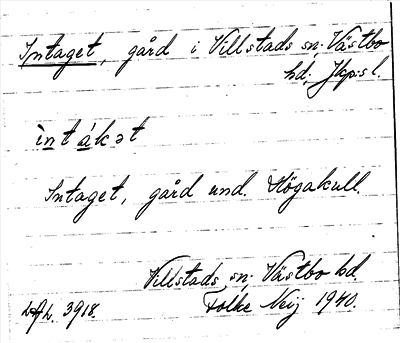 Intaget, gård i Villstads sn; Västbo
hd; Jkp:s l.
ìntákət
Intaget, gård und. Högakull.
Villstads sn; Västbo hd
3918. Folke Neij 1940.